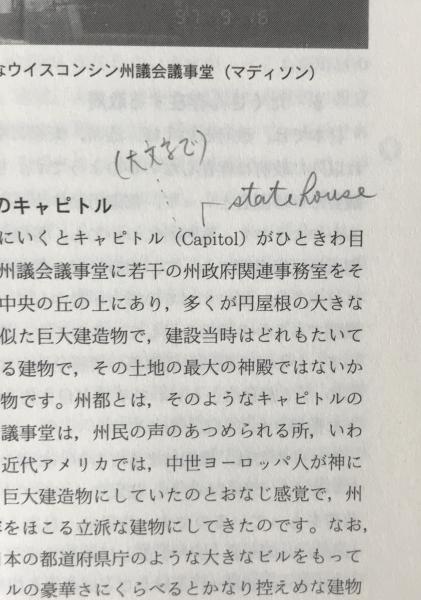 97 9 16
なウイスコンシン州議会議事堂（マディソン）
（大文字で）
state house
のキャピトル
にいくとキャピトル（Capitol）がひときわ目
州議会議事堂に若干の州政府関連事務室をそ
中央の丘の上にあり，多くが円屋根の大きな
似た巨大建造物で，建設当時はどれもたいて
る建物で，その土地の最大の神殿ではないか
物です。州都とは，そのようなキャピトルの
議事堂は，州民の声のあつめられる所，いわ
近代アメリカでは，中世ヨーロッパ人が神に
巨大建造物にしていたのとおなじ感覚で，州
をほこる立派な建物にしてきたのです。なお，
本の都道府県庁のような大きなビルをもって
ルの豪華さにくらべるとかなり控えめな建物